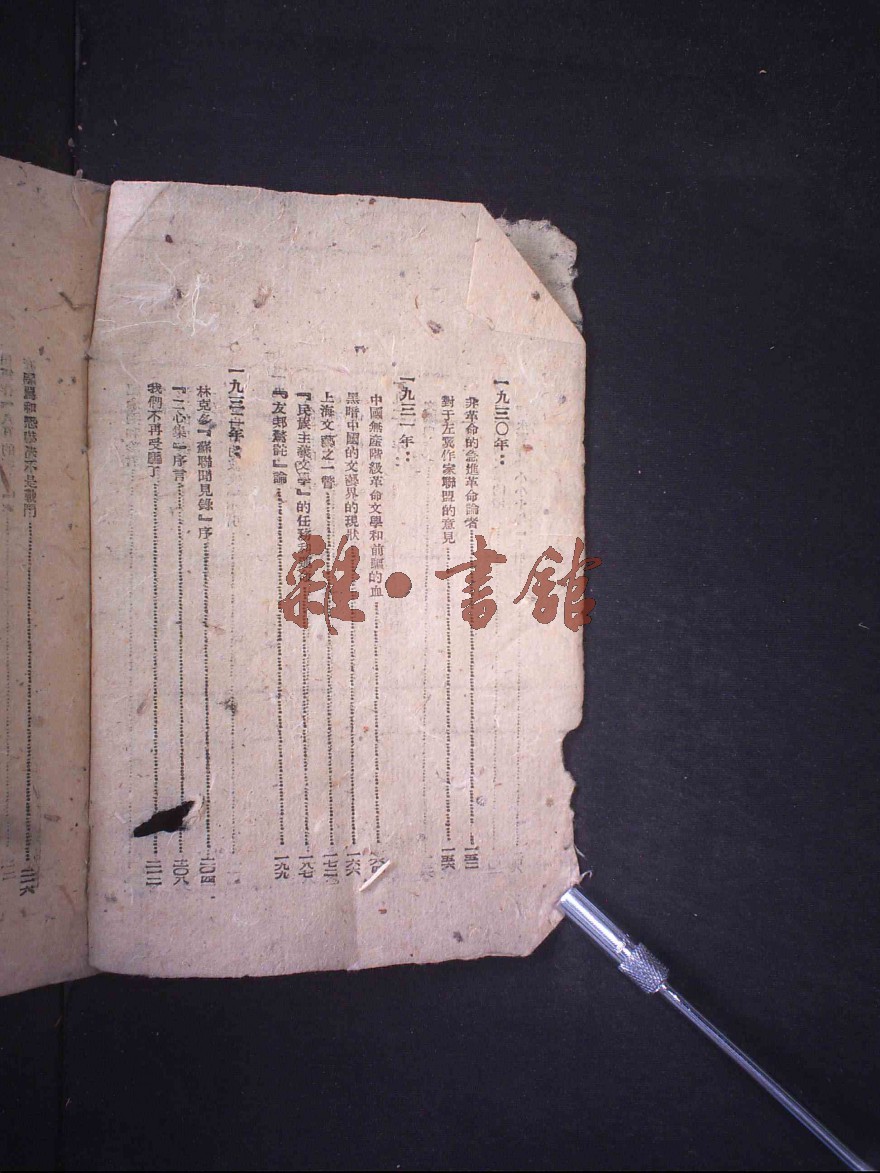 一九三〇年：
非革命的急進革命論者 一五二
對于左翼作家聯盟的意見 一五六
一九三一年：
中國無產階級革命文學和前驅的血
黑暗中國的文藝界的現狀 一六六
上海文藝之一瞥 一七二
『民族主義文學』的任務 一八七
『友邦驚詫』論 一九九
一九三二年：
林克多『蘇聯聞見錄』序 二〇四
『二心集』序言 二〇八
我們不再受騙了 二一二
雜·書館